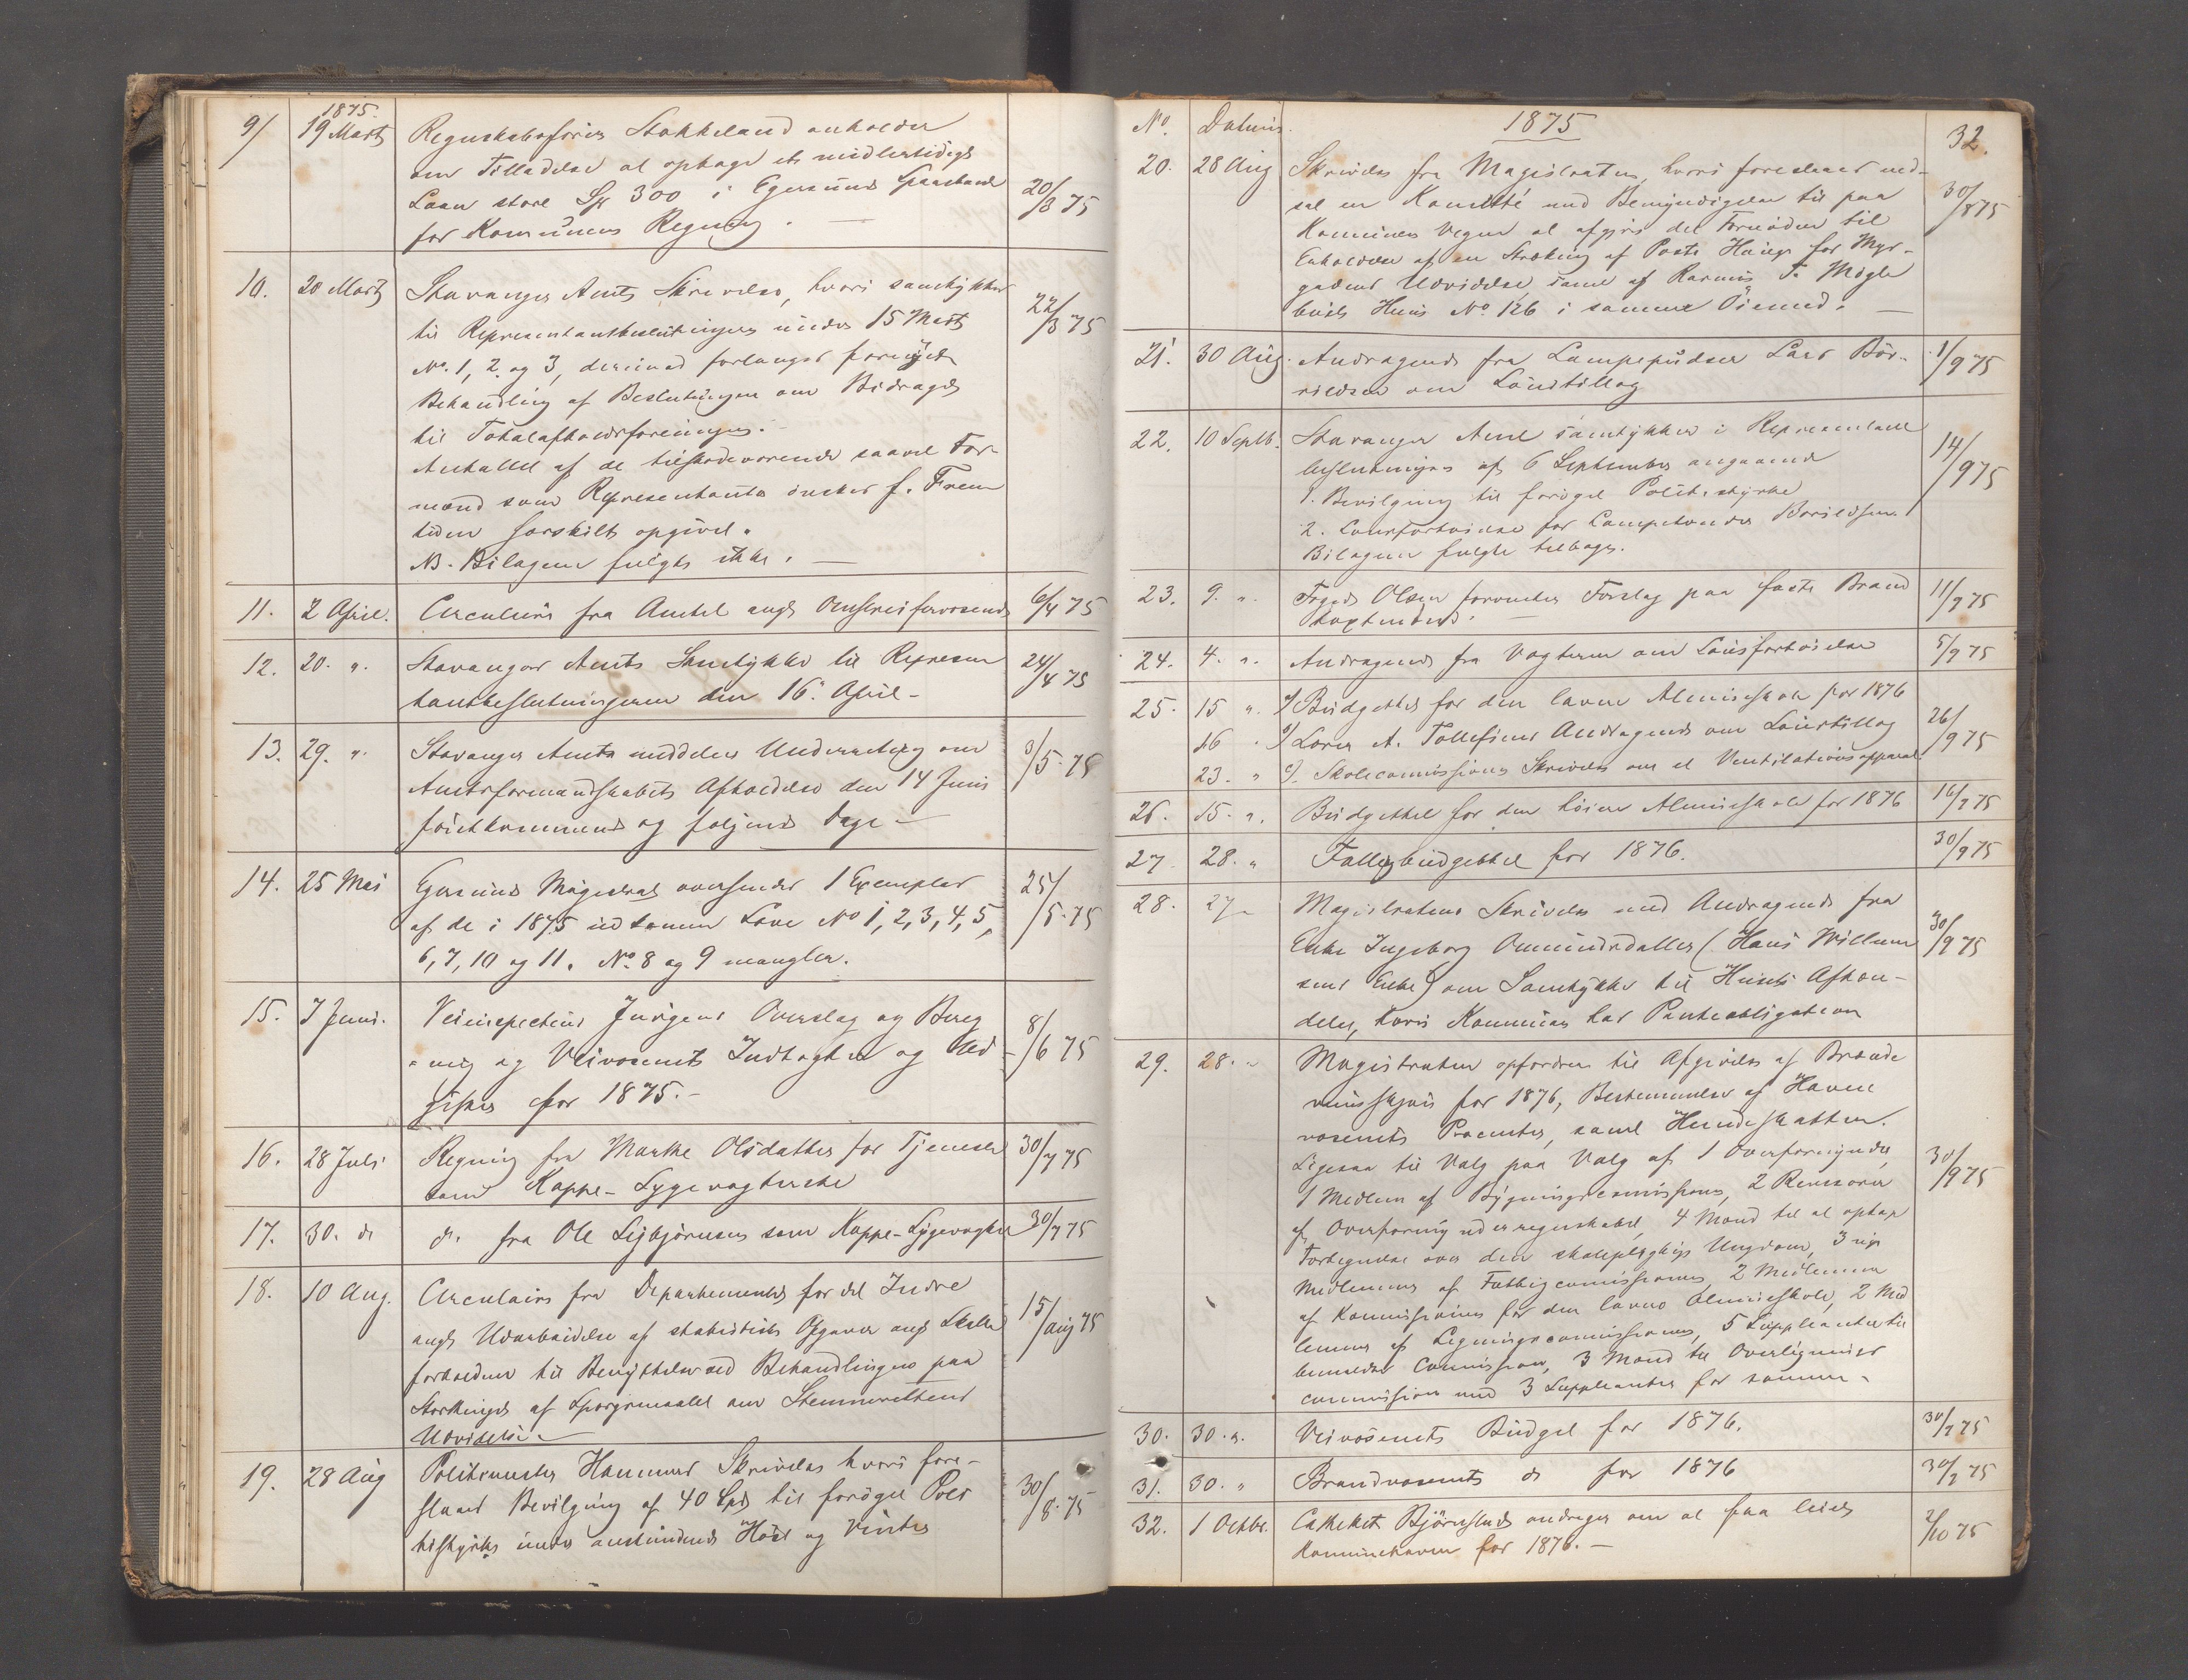 1875.
9/ 19 Marts Regnskabsfører Stokkeland anholder
om Tilladelse at optage et midlertidigt
Laan stort Sp 300 i Egersunds Sparebank 20/3 75
for Komunens Regning. —
10. 20 Marts Stavanger Amts Skrivelse, hvori samtykkes
til Repræsentantbeslutningen under 15 Marts 22/3 75
No. 1, 2 og 3, derimod forlanges fornyet
Behandling af Beslutningen om Bidraget
til Totalafholdsforeningen.
Antallet af de tilstedeværende saavel For
mænd som Repræsentanter ønskes f. Frem
tiden særskilt opgivet.
NB. Bilagene fulgte ikke. —
11. 2 April. Circulære fra Amtet angd Omstreiferværnet 6/4 75
12. 20. ". Stavanger Amts Samtykke til Repræsen
tantbeslutningerne den 16. April – 24/4 75
13. 29. ". Stavanger Amts meddeler Underretning om 3/5 75
Amtsformandskabets Afholdelse den 14 Juni
førstkommende og følgende Dage –
14. 25 Mai Egersunds Magistrat oversender 1 Exemplar 25/5 75
af de i 1875 udkomne Love No 1, 2, 3, 4, 5,
6, 7, 10 og 11. No. 8 og 9 mangler.
15. 7 Juni. Veiinspecteur Jürgens Overslag og Bereg
ning og Veivæsenets Indtægter og Ud 8/6 75
gifter for 1875. –
16. 28 Juli Regning fra Marthe Olsdatter for Tjeneste 30/7 75
som Koppe-Sygevogterske
17. 30. do do. fra Ole Sigbjørnsen som Koppe-Sygevogter 30/7 75
18. 10 Aug. Circulaire fra Departementet for det Indre
angd Udarbeidelse af statistiske Opgaver angd Skatte 15/aug 75
forholdene til Benyttelse ved Behandlingen paa
Storthinget af Spørgsmaalet om Stemmerettens
Udvidelse –
19. 28 Aug Politimester Hammers Skrivelse hvori fore-
slaaes Bevilgning af 40 Spd til forøget Poli 30/8. 75
tistyrke under anstundende Høst og Vinter
No. Datum. 1875 32.
20. 28 Aug Skrivelse fra Magistraten, hvori foreslaaes ned-
sat en Komitté med Bemyndigelse til paa 30/8 75
Komunens Vegne at afgjøre det Fornødne til
Erholdelse af en Strekning af Poste Haugs for Myr-
gadens Udvidelse samt af Rasmus T. Mögle
buds Huus No 126 i samme Øiemed. —
21. 30 Aug. Andragende fra Lampepudser Lars Bör- 1/9 75
rildsen om Löntillæg
22. 10 Septb. Stavanger Amt samtykker i Repræsentant
beslutningen af 6 September angaaende 14/9 75
1. Bevilgning til forøget Politistyrke
2. Lønsforhøielse for Lampetænder Borildsen.
Bilagene fulgte tilbage.
23. 9. ". Foged Olsen forventer Forslag paa faste Brand 11/9 75
takstmænd. —
24. 4. ". Andragende fra Vægterne om Lønsforhøielse 5/9 75
25. 15 ". a) Budgettet for den lavere Almueskole for 1876
16 " b) Lærer A. Tollefsens Andragende om Lønstillæg 26/9 75
23. " c). Skolecommissionens Skrivelse om et Ventilationsapparat
26. 15. ". Budgettet for den høiere Almueskole for 1876 16/9 75
27 28. " Fattigbudgettet for 1876. 30/9 75
28. 27 " Magistratens Skrivelse med Andragende fra
Enke Ingeborg Ommundsdatter (Hans Willum 30/9 75
sens Enke) om Samtykke til Huusets Afhæn-
delse, hvori Komunen har Panteobligation
29. 28. " Magistraten opfordrer til Afgivelse af Brænde
viinsskjøn for 1876, Bestemmelse af Havne
væsenets Procenter, samt Hundeskatten.
Ligesaa til Valg paa Valg af 1 Overformynder 30/9 75
1 Medlem af Bygningscommissionen, 2 Revisorer
af Overformynderregnskabet, 4 Mænd til at optage
Fortegnelse over den skolepligtige Ungdom, 3 nye
Medlemmer af Fattigcommissionen, 2 Medlemmer
af Kommissionen for den lavere Almueskole, 2 Med
lemmer af Ligningscommissionen, 5 Suppleanter til
bemeldte Commission, 3 Mænd til Overlignings
commission med 3 Suppleanter for samme –
30. 30. ". Veivæsenets Budget for 1876. 30/9 75
31. 30. " Brandvæsenets do for 1876 30/9 75
32. 1 Octbr. Catheket Bjørnstad andrager om at faa leiet 2/10 75
Komunehaven for 1876. —